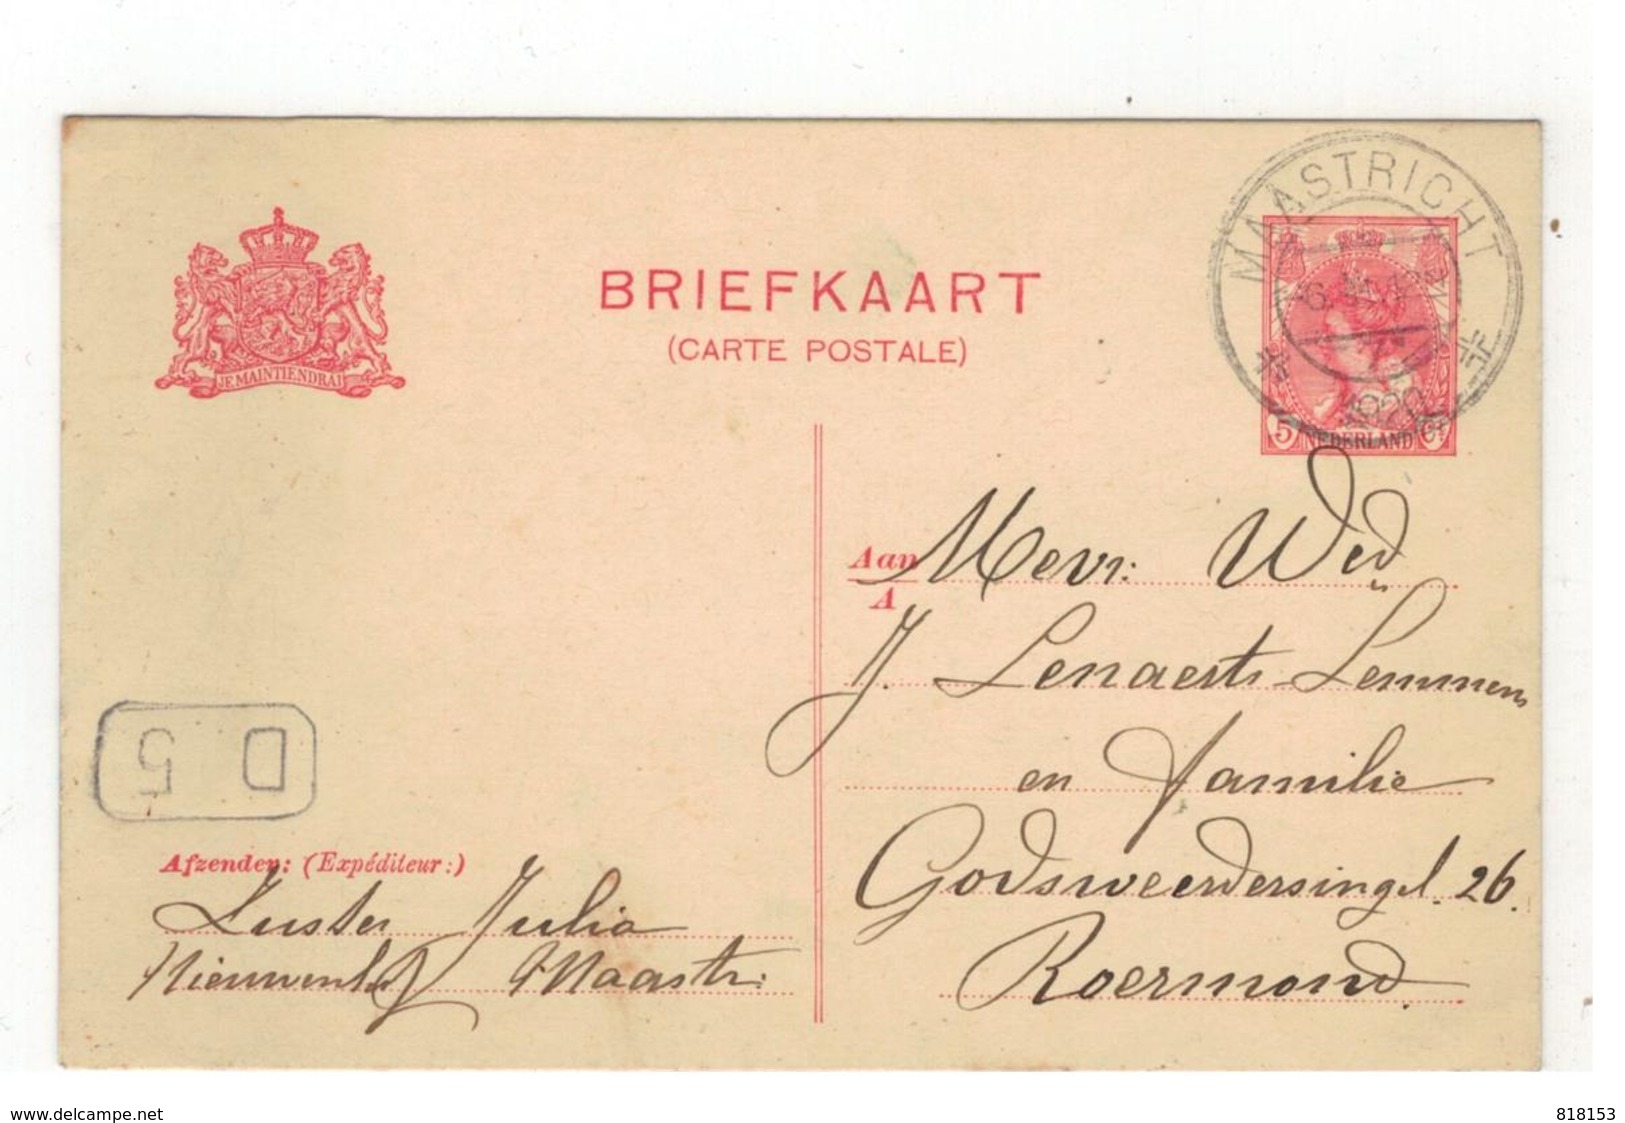 BRIEFKAART
(CARTE POSTALE)
JE MAINTIENDRAI
MAASTRICHT
1920
5 NEDERLAND CT
Aan
A
Mevr. Wed
J. Lenaerts-Lemmens
en familie
Godsweerdersingel. 26.
Roermond.
D 5
Afzender: (Expéditeur:)
Zuster Julia
Maastr:
www.delcampe.net
818153